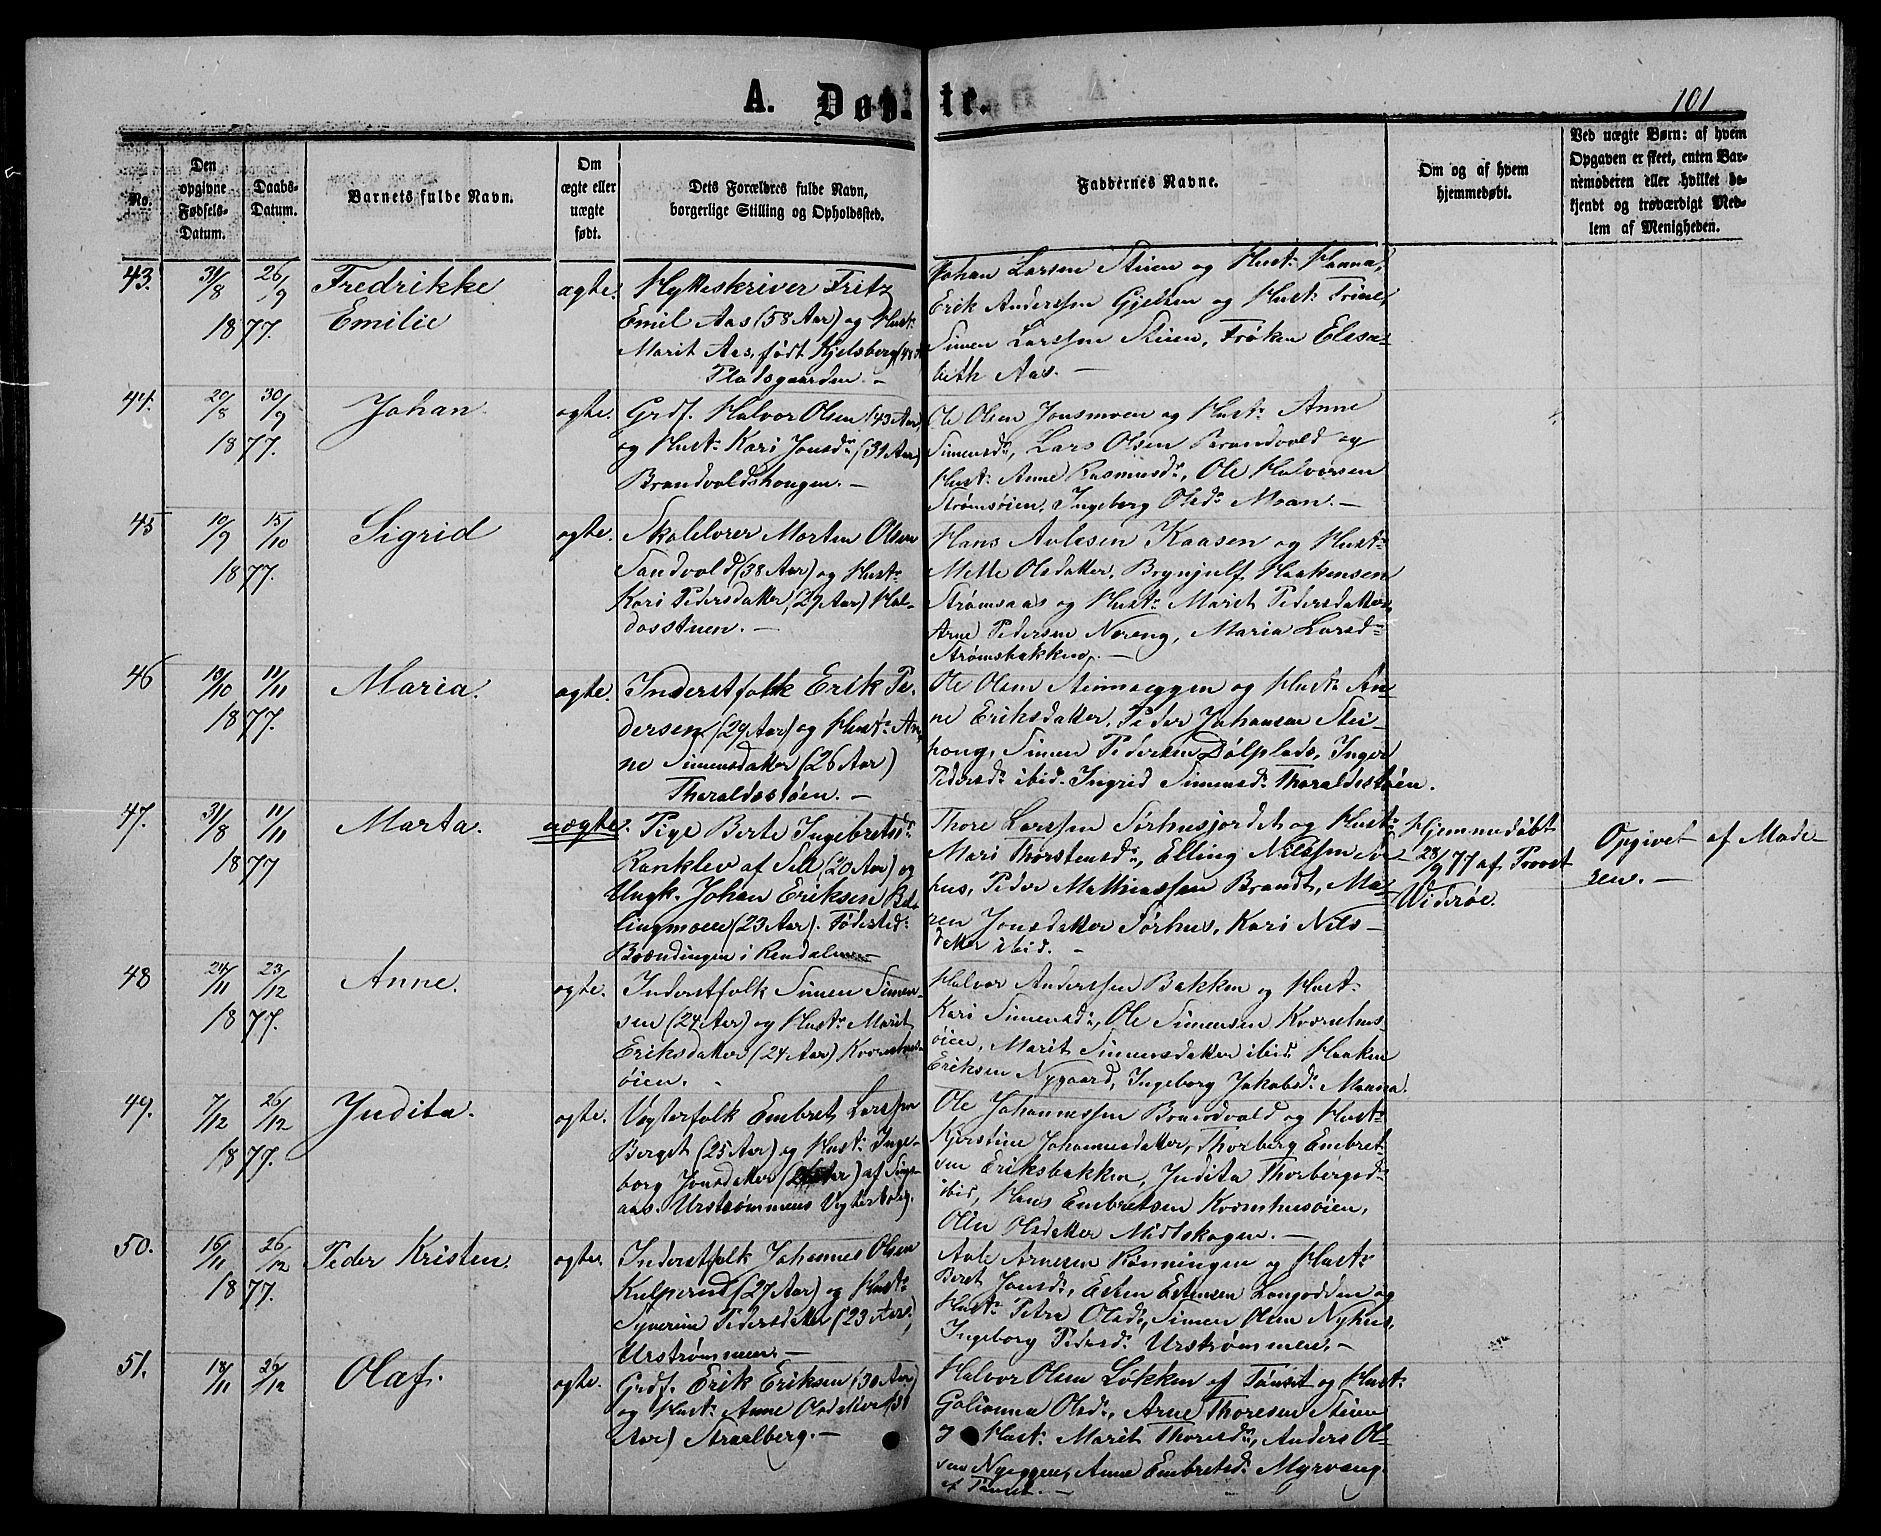 A. Døbte.
101
No.
Den opgivne Fødsels-Datum.
Daabs-Datum.
Barnets fulde Navn.
Om ægte eller uægte født.
Dets Forældres fulde Navn, borgerlige Stilling og Opholdssted.
Faddernes Navne.
Om og af hvem hjemmedøbt.
Ved uægte Børn: af hvem Opgaven er skeet, enten Barnemoderen eller hvilket bekjendt og troværdigt Medlem af Menigheden.
43. 31/8 26/9 1877. Fredrikke Emilie ægte.
Hytteskriver Fritz
Emil Aas (58 Aar) og Hust:
Marit Aas, født Kjelsberg
Pladsgaarden. —
Johan Larsen Stuen og Hust:
Erik Anderssen Gjelten og Hust: Trine,
Simen Larssen Stuen, Frøken Elesa-
beth Aas. —
44. 20/8 30/9 1877. Johan. ægte.
Grdf. Halvor Olsen (43 Aar)
og Hust: Kari Jonsd: (31 Aar)
Brandvoldshougen. —
Ole Olsen Jonsmoen og Hust: Anne
Simensd:, Lars Olsen Brandvold og
Hust: Anne Rasmusd:, Ole Halvorsen
Strømsøien, Ingeborg Olsd: Moan. —
45 10/9 15/10 1877. Sigrid ægte.
Skolelærer Morten Olsen
Sandvold (38 Aar) og Hust:
Kari Pedersdatter, (29 Aar) Hal-
dosstuen. —
Hans Avlesen Kaasen og Hust:
Mette Olsdatter, Brynjulf Haakensen
Strømsaas og Hust: Marit Pedersdatter,
Arne Pedersen Noreng, Maria Larsd:
Strømsbakken. —
46 13/10 11/11 1877. Maria. ægte.
Inderstfolk Erik Pe-
dersen (29 Aar) og Hust: An-
ne Simensdatter (26 Aar)
Tharaldsstøen. —
Ole Olsen Steinseggen og Hust: An-
ne Eriksdatter, Peder Johansen Stei-
hong, Simen Pedersen Dølplads, Inger
Pedersd: ibid. Ingrid Simensd: Tharaldsstøen.
47. 31/8 11/11 1877 Marta. uægte.
Pige Berte Ingebretsd:
Ranklev af Sell (20 Aar) og
Ungk. Johan Eriksen Bel-
lingmoen (23 Aar). Fødested:
Brændingen i Rendalen —
Thore Larssen Sørhusjordet og Hust:
Mari Thorstensd:, Elling Nilssen
hus, Peder Mathiassen Brandt, Ma-
ren Jonsdatter Sørhus, Kari Nils-
datter ibid. —
Hjemmedøbt
28/9 77 af Provst
Widerøe.
Opgivet af Mode-
ren. —
48 24/11 23/12 1877. Anne. ægte.
Inderstfolk Simen Simen-
sen (24 Aar) og Hust: Marit
Eriksdatter (24 Aar) Kværnhus-
øien.
Halvor Anderssen Bakken og Hust:
Kari Simensd:, Ole Simensen Kværnhus-
øien, Marit Simensdatter ibid. Haaken
Eriksen Nygaard, Ingeborg Jakobsd: Moana.
49. 7/12 26/12 1877. Judita. ægte.
Vogterfolk Embret Larssen
Berget (25 Aar) og Hust: Inge-
borg Jonsdatter af Tings-
aas. Urstrømmens Vogterbolig.
Ole Johannessen Brandvold og Hust:
Kjerstine Johannesdatter, Thorberg Embret-
sen Eriksbakken, Judita Thorbergsd:
ibid, Hans Embretsen Kværnhusøien,
Olin Olsdatter Midtskogen. —
50. 16/11 26/12 1877. Peder Kristen. ægte.
Inderstfolk Johannes Olsen
Kulperud (27 Aar) og Hust:
Syverine Pedersdatter (23 Aar),
Urstrømmen. —
Avle Arnesen Rønningen og Hust:
Beret Jonsd:, Esten Estensen Langodden og
Hust: Petra Olsd:, Simen Olsen Nyhus,
Ingeborg Pedersd: Urstrømmen. —
51. 18/11 26/12 Olaf. ægte.
Grdf. Erik Eriksen (30 Aar)
og Hust: Anne Olsdatter (31
Aar) Straalberg. —
Halvor Olsen Løkken af Tønset og Hust:
Golianna Olsd:, Arne Thoresen Stuen
og Hust: Marit Thoresd:, Anders Ol-
sen Nyeggen, Anne Embretsd: Myrvang
af Tønset. —